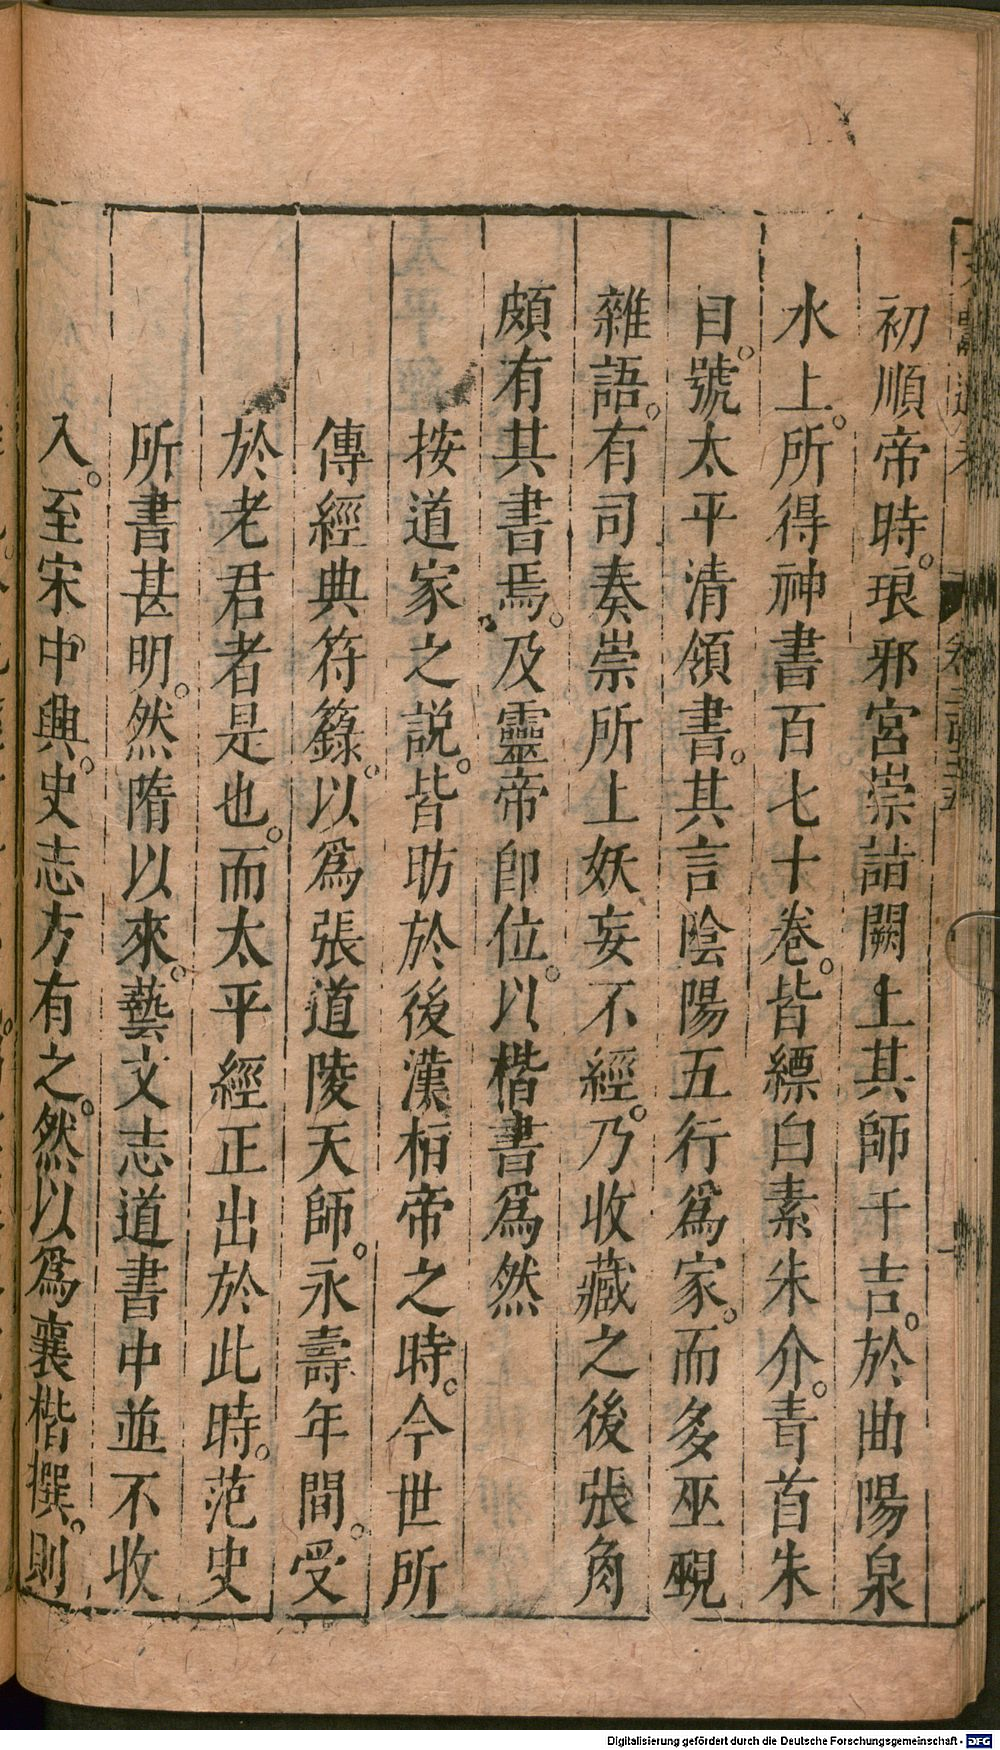 初順帝時。琅邪宮崇詣闕上其師千吉。於曲陽泉
水上。所得神書百七十卷。皆縹白素朱介。青首朱
目。號太平清領書。其言陰陽五行爲家。而多巫覡
雜語。有司奏崇所上妖妄不經。乃收藏之後張角
頗有其書焉。及靈帝卽位。以楷書爲然
按道家之説。皆昉於後漢栢帝之時。今世所
傳經典符籙。以爲張道陵天師。永壽年間。受
於老君者是也。而太平經正出於此時。范史
所書甚明。然隋以來。藝文志道書中並不收
入。至宋中興。史志方有之。然以爲襄楷撰。則
Digitalisierung gefördert durch die Deutsche Forschungsgemeinschaft - DFG